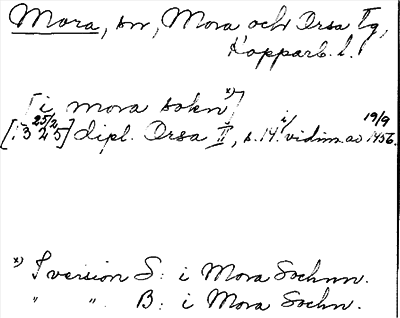 Mora, sn, Mora och Orsa tg,
Kopparb. l.
[i mora sokn x)]
[1325 25/2] dipl. Orsa II, s. 14. i vidim. av 19/9 1456.
x) I version S: i Mora Sochnn.
" " B: i Mora Sochn.